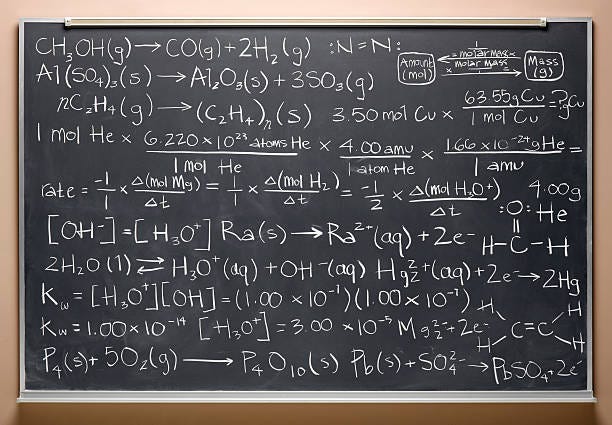 CH₃OH(g) → CO(g) + 2H₂(g) :N=N: Amount (mol) 1/molar mass × × molar mass/1 Mass (g)
Al(SO₄)₃(s) → Al₂O₃(s) + 3SO₃(g)
nC₂H₄(g) → (C₂H₄)ₙ(s) 3.50 mol Cu × 63.55 g Cu/1 mol Cu = ?g Cu
1 mol He × 6.220 × 10²³ atoms He/1 mol He × 4.00 amu/1 atom He × 1.66 × 10⁻²⁴ g He/1 amu =
rate = -1/1 × Δ(mol Mg)/Δt = 1/1 × Δ(mol H₂)/Δt = -1/2 × Δ(mol H₃O⁺)/Δt 4.00g He
[OH⁻] = [H₃O⁺] Ra(s) → Ra²⁺(aq) + 2e⁻ :O: H-C-H
2H₂O(l) ⇌ H₃O⁺(aq) + OH⁻(aq) Hg₂²⁺(aq) + 2e⁻ → 2Hg
K_w = [H₃O⁺][OH] = (1.00 × 10⁻⁷)(1.00 × 10⁻⁷)
K_w = 1.00 × 10⁻¹⁴ [H₃O⁺] = 3.00 × 10⁻⁵ Mg²⁺ + 2e⁻ H H C=C H H
P₄(s) + 5O₂(g) → P₄O₁₀(s) Pb(s) + SO₄²⁻ → PbSO₄ + 2e⁻